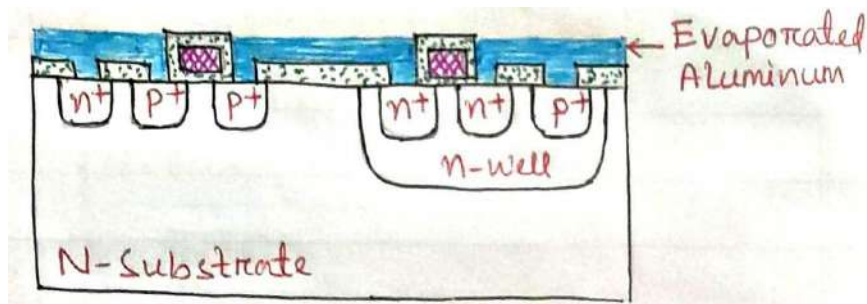 Evaporated
Aluminum
n+ p+ p+ n+ n+ p+
n-well
N-Substrate